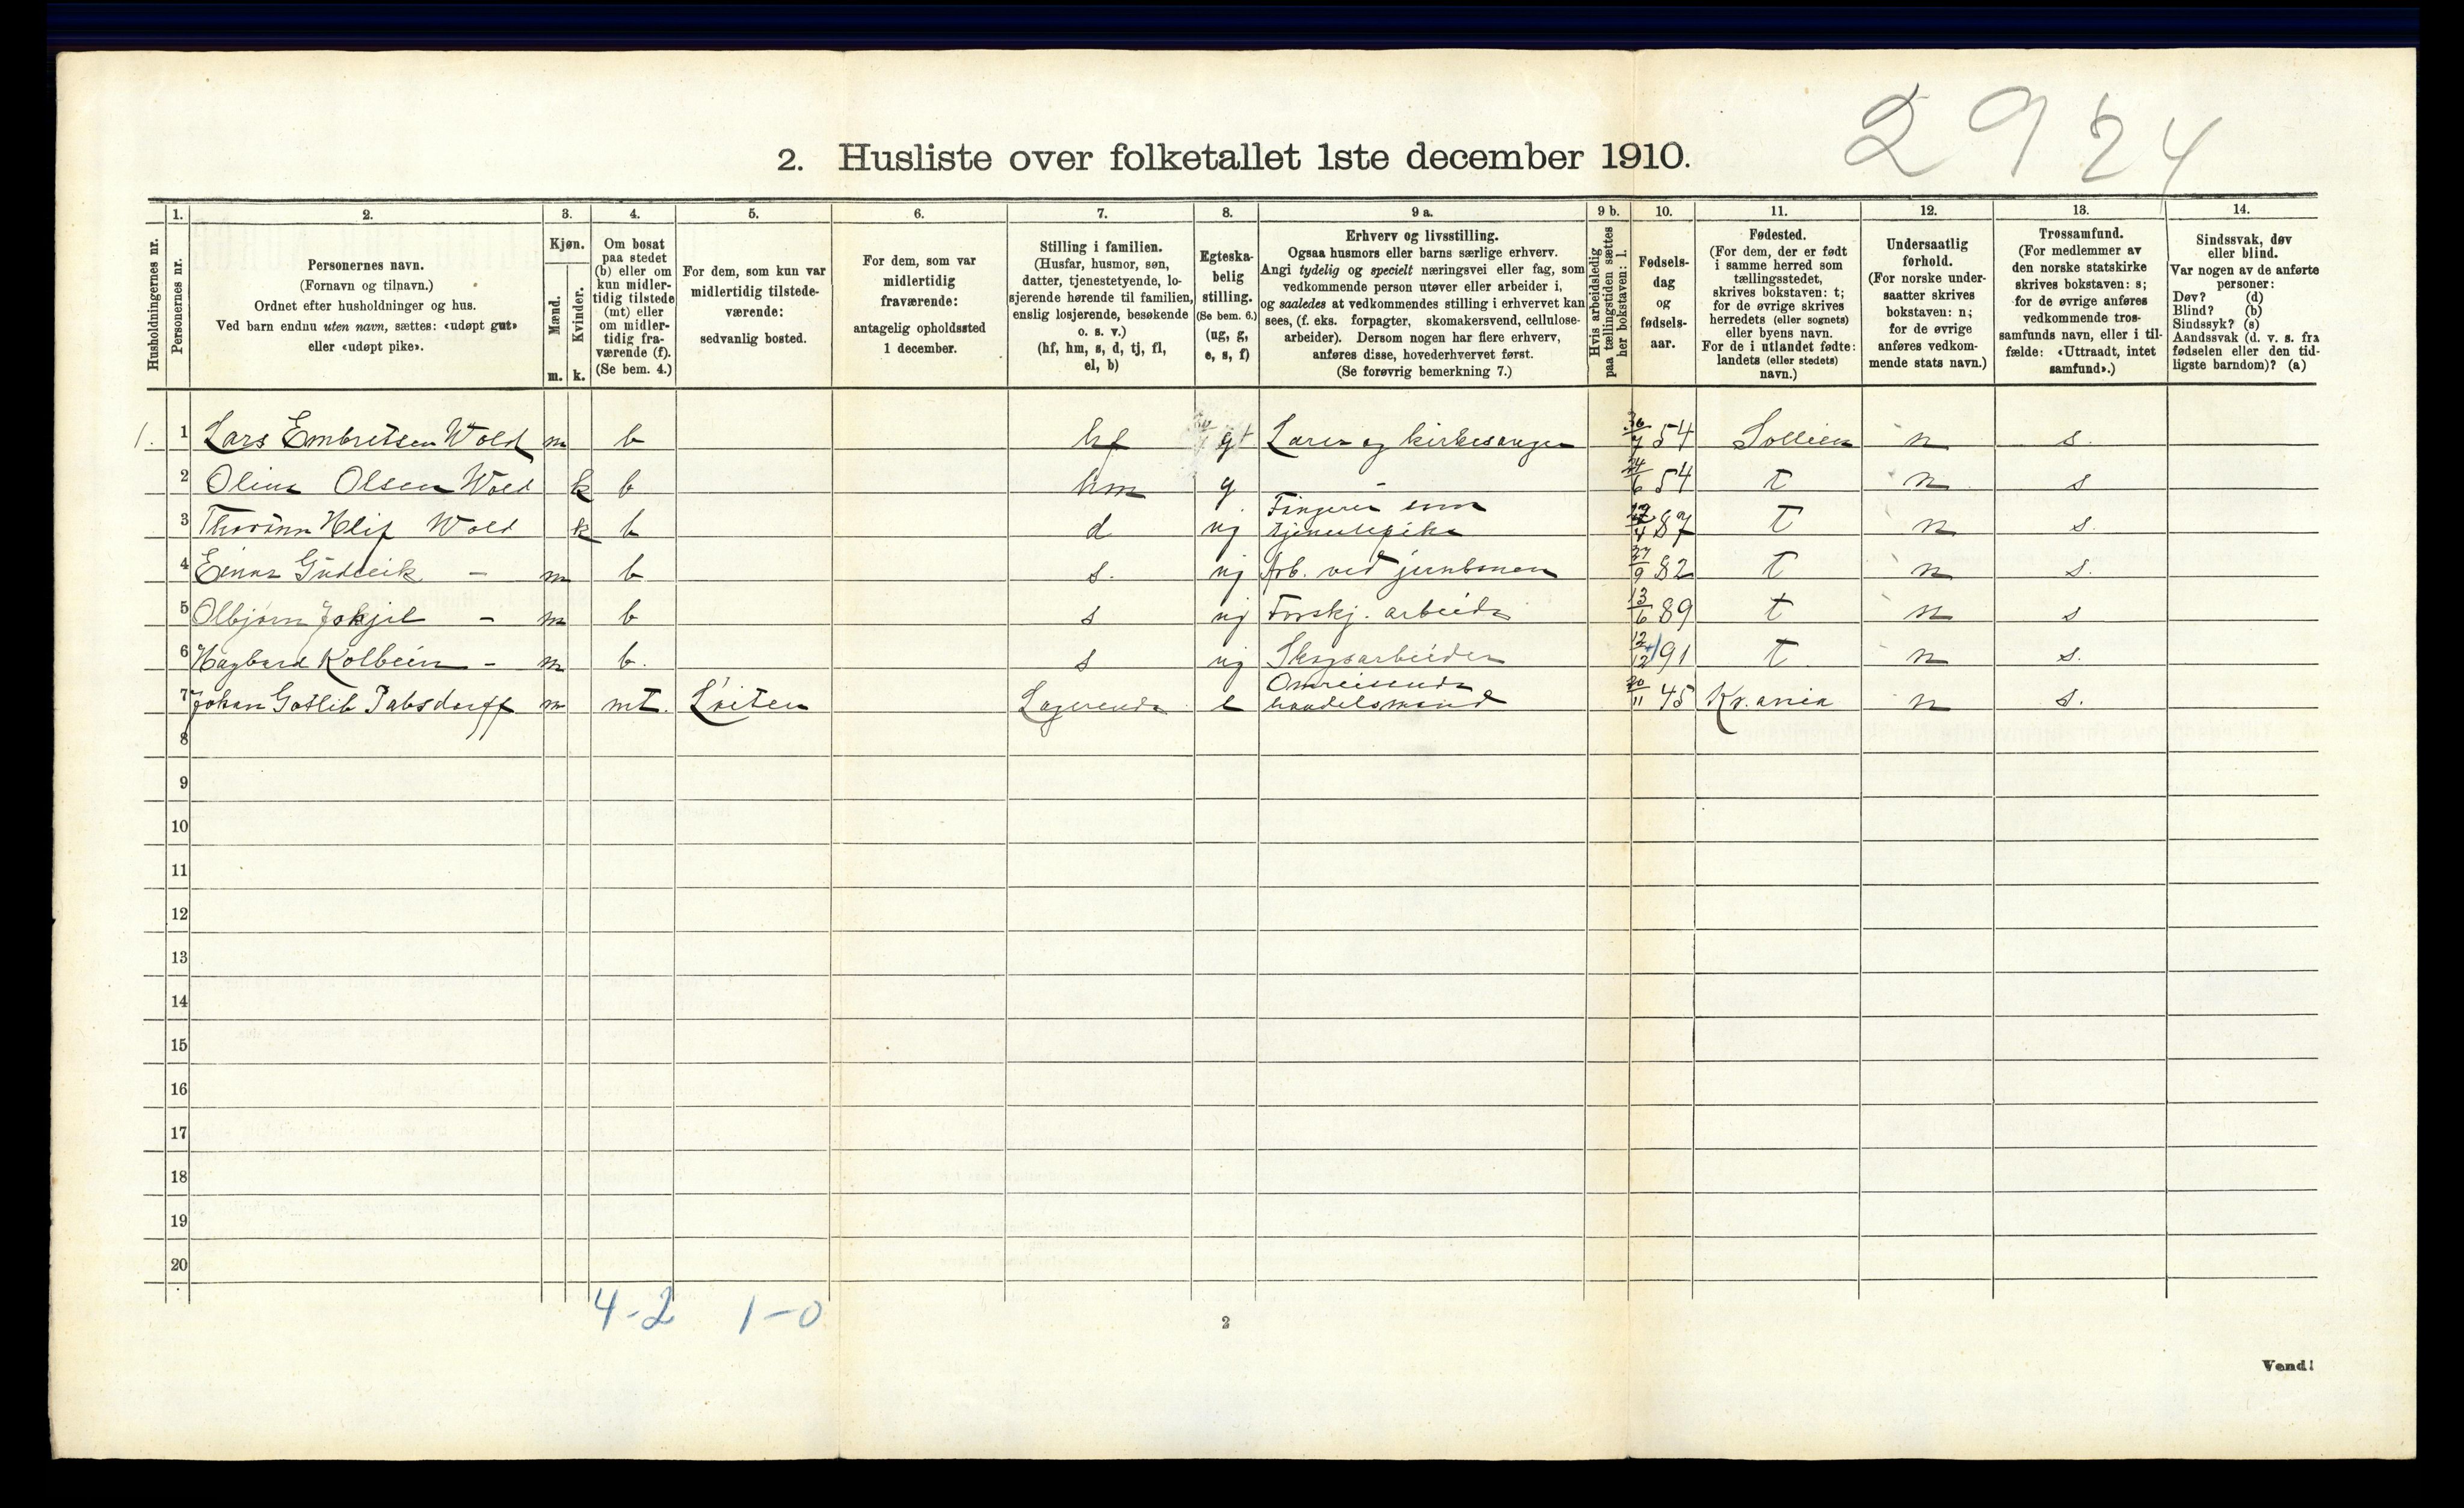 2924
2. Husliste over folketallet 1ste december 1910.
Husholdningernes nr.
1. Personernes nr.
2. Personernes navn.
(Fornavn og tilnavn.)
Ordnet efter husholdninger og hus.
Ved barn endnu uten navn, sættes: «udøpt gut»
eller «udøpt pike».
3. Kjøn.
Mænd. m.
Kvinder. k.
4. Om bosat
paa stedet
(b) eller om
kun midler-
tidig tilstede
(mt) eller
om midler-
tidig fra-
værende (f).
(Se bem. 4.)
5. For dem, som kun var
midlertidig tilstede-
værende:
sedvanlig bosted.
6. For dem, som var
midlertidig
fraværende:
antagelig opholdssted
1 december.
7. Stilling i familien.
(Husfar, husmor, søn,
datter, tjenestetyende, lo-
sjerende hørende til familien,
enslig losjerende, besøkende
o. s. v.)
(hf, hm, s, d, tj, fl,
el, b)
8. Egteska-
belig
stilling.
(Se bem. 6.)
(ug, g,
e, s, f)
9 a. Erhverv og livsstilling.
Ogsaa husmors eller barns særlige erhverv.
Angi tydelig og specielt næringsvei eller fag, som
vedkommende person utøver eller arbeider i,
og saaledes at vedkommendes stilling i erhvervet kan
sees, (f. eks. forpagter, skomakersvend, cellulose-
arbeider). Dersom nogen har flere erhverv,
anføres disse, hovederhvervet først.
(Se forøvrig bemerkning 7.)
9 b. Hvis arbeidsledig
paa tællingstiden sættes
her bokstaven: l.
10. Fødsels-
dag
og
fødsels-
aar.
11. Fødested.
(For dem, der er født
i samme herred som
tællingsstedet,
skrives bokstaven: t;
for de øvrige skrives
herredets (eller sognets)
eller byens navn.
For de i utlandet fødte:
landets (eller stedets)
navn.)
12. Undersaatlig
forhold.
(For norske under-
saatter skrives
bokstaven: n;
for de øvrige
anføres vedkom-
mende stats navn.)
13. Trossamfund.
(For medlemmer av
den norske statskirke
skrives bokstaven: s;
for de øvrige anføres
vedkommende tros-
samfunds navn, eller i til-
fælde: «Uttraadt, intet
samfund».)
14. Sindssvak, døv
eller blind.
Var nogen av de anførte
personer:
Døv? (d)
Blind? (b)
Sindssyk? (s)
Aandssvak (d. v. s. fra
fødselen eller den tid-
ligste barndom)? (a)
1. 1 Lars Embretsen Wold m b hf g Lærer og kirkesanger 54 Sollien n s.
2 Oline Olsen Wold k b hm g 24/6 54 t n s
3 Wold k b d ug Fingerer som tjenestepike 87 t n s.
4 Einar Gudleik - m b s. ug Arb. ved jernbanen 27/9 82 t n s.
5 Olbjørn Jokjel - m b s ug Forskj. arbeide 13/6 89 t n s
6 Hagbard Kolbein - m b. s ug Skogsarbeider 12/12 91 t n s.
7 Johan Gotlib Pabsdorff m mt. Løiten Logerende e Omreisende handelsmand 20/11 45 Kr.ania n s.
8
9
10
11
12
13
14
15
16
17
18
19
20
4-2 1-0
2
Vend!